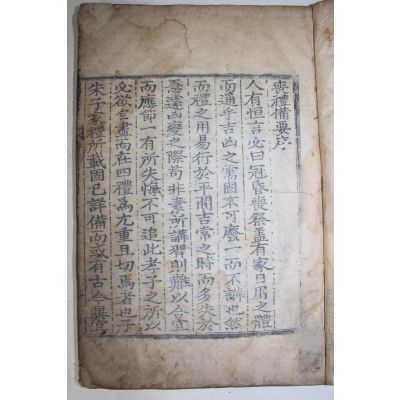 喪禮備要序
人有恒言必曰冠昏喪祭盖有家日用之體
而通乎吉凶之常固不可廢一而不講也然
而禮之用易行於平閒吉常之時而多失於
急遽凶變之際苟非素所講習則難以合宜
而應節一有所失悔不可追此孝子之所以
必欲自盡而在四禮為尤重且切焉者也子
朱子家禮所載固已詳備而或有古今異宜